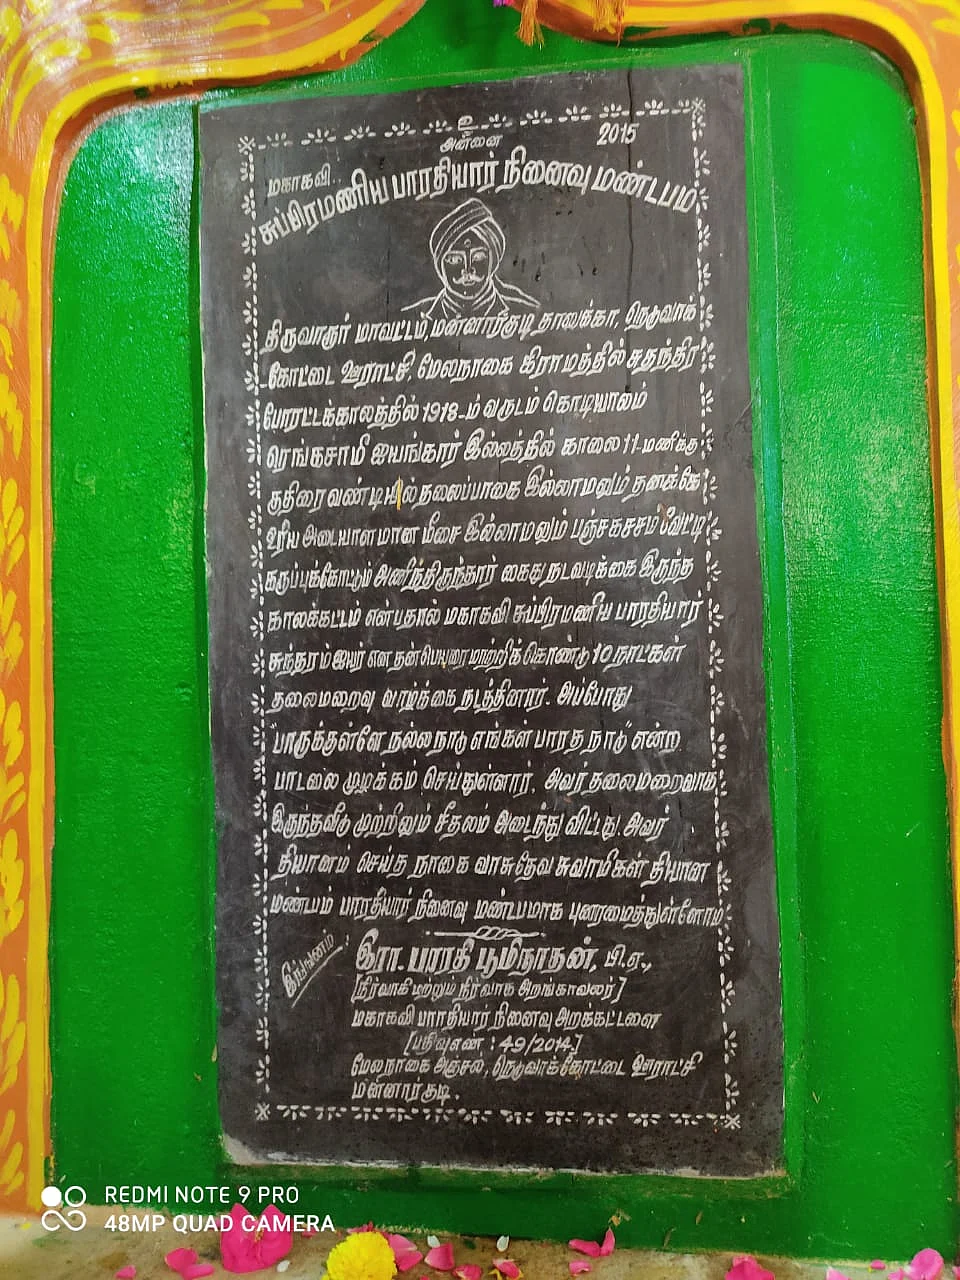 உ
அன்னை
2015
மகாகவி..
சுப்பிரமணிய பாரதியார் நினைவு மண்டபம்
திருவாரூர் மாவட்டம், மன்னார்குடி தாலுக்கா, நெடுவாக்
கோட்டை ஊராட்சி, மேலநாகை கிராமத்தில் சுதந்திர
போராட்டக்காலத்தில் 1918-ம் வருடம் கொடியாலம்
ரெங்கசாமி ஐயங்கார் இல்லத்தில் காலை 11-மணிக்கு
குதிரை வண்டியில் தலைப்பாகை இல்லாமலும் தனக்கே
உரிய அடையாளமான மீசை இல்லாமலும் பஞ்சகச்சம் வேட்டி
கருப்புக்கோட்டும் அணிந்திருந்தார் கைது நடவடிக்கை இருந்த
காலக்கட்டம் என்பதால் மகாகவி சுப்பிரமணிய பாரதியார்
சுந்தரம் ஐயர் என தன் பெயரை மாற்றிக் கொண்டு 10 நாட்கள்
தலைமறைவு வாழ்க்கை நடத்தினார். அப்போது
"பாருக்குள்ளே நல்ல நாடு எங்கள் பாரத நாடு" என்ற
பாடலை முழக்கம் செய்துள்ளார். அவர் தலைமறைவாக
இருந்தவீடு முற்றிலும் சீதலம் அடைந்து விட்டது. அவர்
தியானம் செய்த நாகை வாசுதேவ சுவாமிகள் தியான
மண்டபம் பாரதியார் நினைவு மண்டபமாக புணரமைத்துள்ளோம்
இங்ஙனம் :
இரா. பாரதி பூமிநாதன், பி.ஏ.,
[நிர்வாகி மற்றும் நிர்வாக அறங்காவலர்]
மகாகவி பாரதியார் நினைவு அறக்கட்டளை
[பதிவு எண் : 49/2014]
மேலநாகை அஞ்சல், நெடுவாக்கோட்டை ஊராட்சி
மன்னார்குடி.
REDMI NOTE 9 PRO
48MP QUAD CAMERA